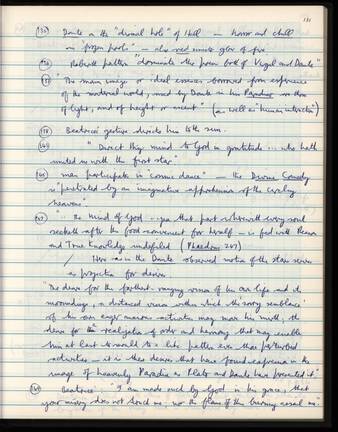 131
(130) Dante in the "dismal hole" of Hell — horror and chill
in "frozen pools" — also red minute glow of fire
Rebirth pattern "dominate the poem both of Virgil and Dante"
"The main image or ideal essences borrowed from experience
of the material world, used by Dante in his Paradiso are those
of light, and of height or ascent" (as well as "human interaction")
(138) Beatrice's gesture directs him to the sun.
"Direct thy mind to God in gratitude ... who hath
united us with the first star"
man participates in "cosmic dance" — the Divine Comedy
is "penetrated by an imaginative apprehension of the circling
heavens"
"... the mind of God ... yea that part wherewith every soul
seeketh after the food convenient for herself — is fed with Reason
and True Knowledge undefiled (Phaedrus 247)
/ Here as in the Dante observed motion of the stars serves
as projection for desire.
"The desire for the farthest ranging vision of our life and its
surroundings, a distanced vision within which the 'ivory semblance'
of his own eager narrow activities may mar his mirth, the
desire for the realization of order and harmony that may enable
him at last to mould to a like pattern even these perturbed
activities — it is these desires that have found expression in the
image of heavenly Paradise as Plato and Dante have presented it"
Beatrice: "I am made such by God in his grace, that
your misery does not touch me, nor the flame of this burning assail me"